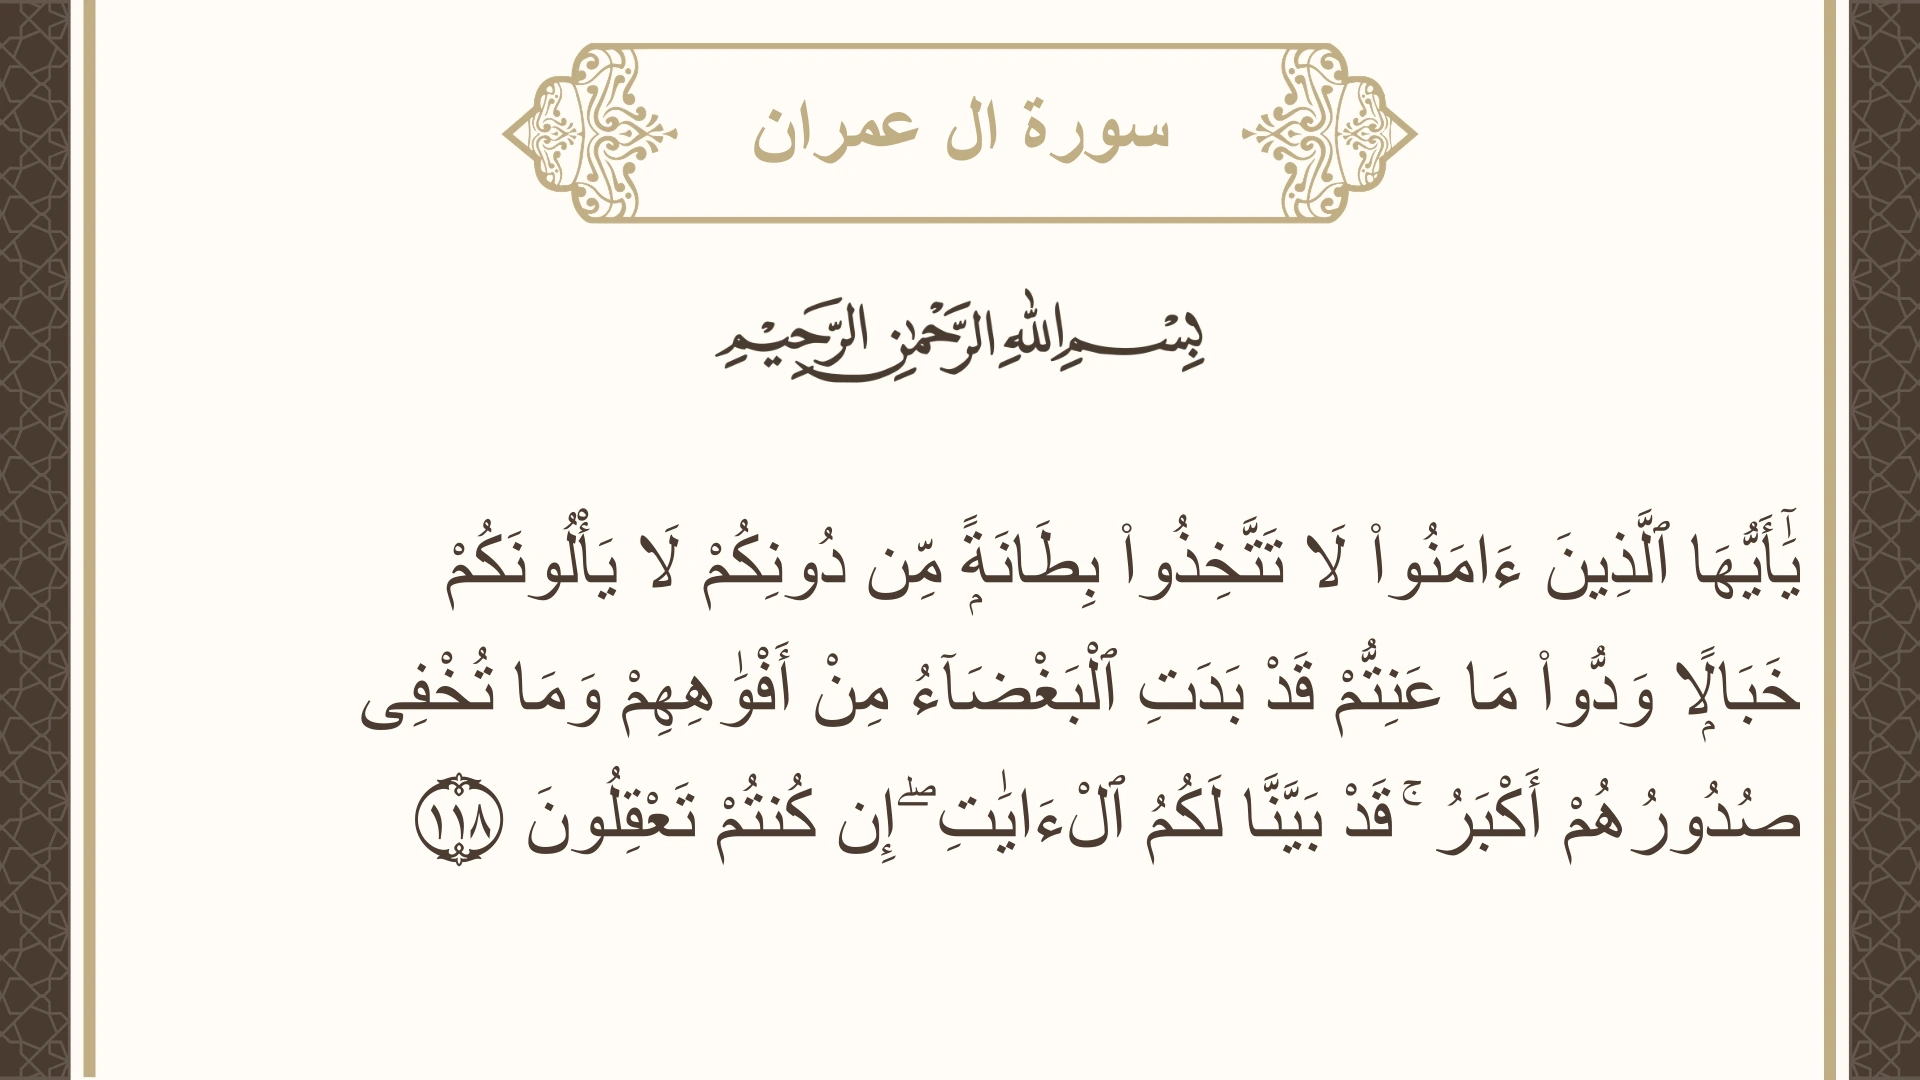 سورة ال عمران
بِسْمِ اللهِ الرَّحْمٰنِ الرَّحِيْمِ
يَٰٓأَيُّهَا ٱلَّذِينَ ءَامَنُوا۟ لَا تَتَّخِذُوا۟ بِطَانَةًۭ مِّن دُونِكُمْ لَا يَأْلُونَكُمْ
خَبَالًۭا وَدُّوا۟ مَا عَنِتُّمْ قَدْ بَدَتِ ٱلْبَغْضَآءُ مِنْ أَفْوَٰهِهِمْ وَمَا تُخْفِى
صُدُورُهُمْ أَكْبَرُ ۚ قَدْ بَيَّنَّا لَكُمُ ٱلْءَايَٰتِ ۖ إِن كُنتُمْ تَعْقِلُونَ ١١٨